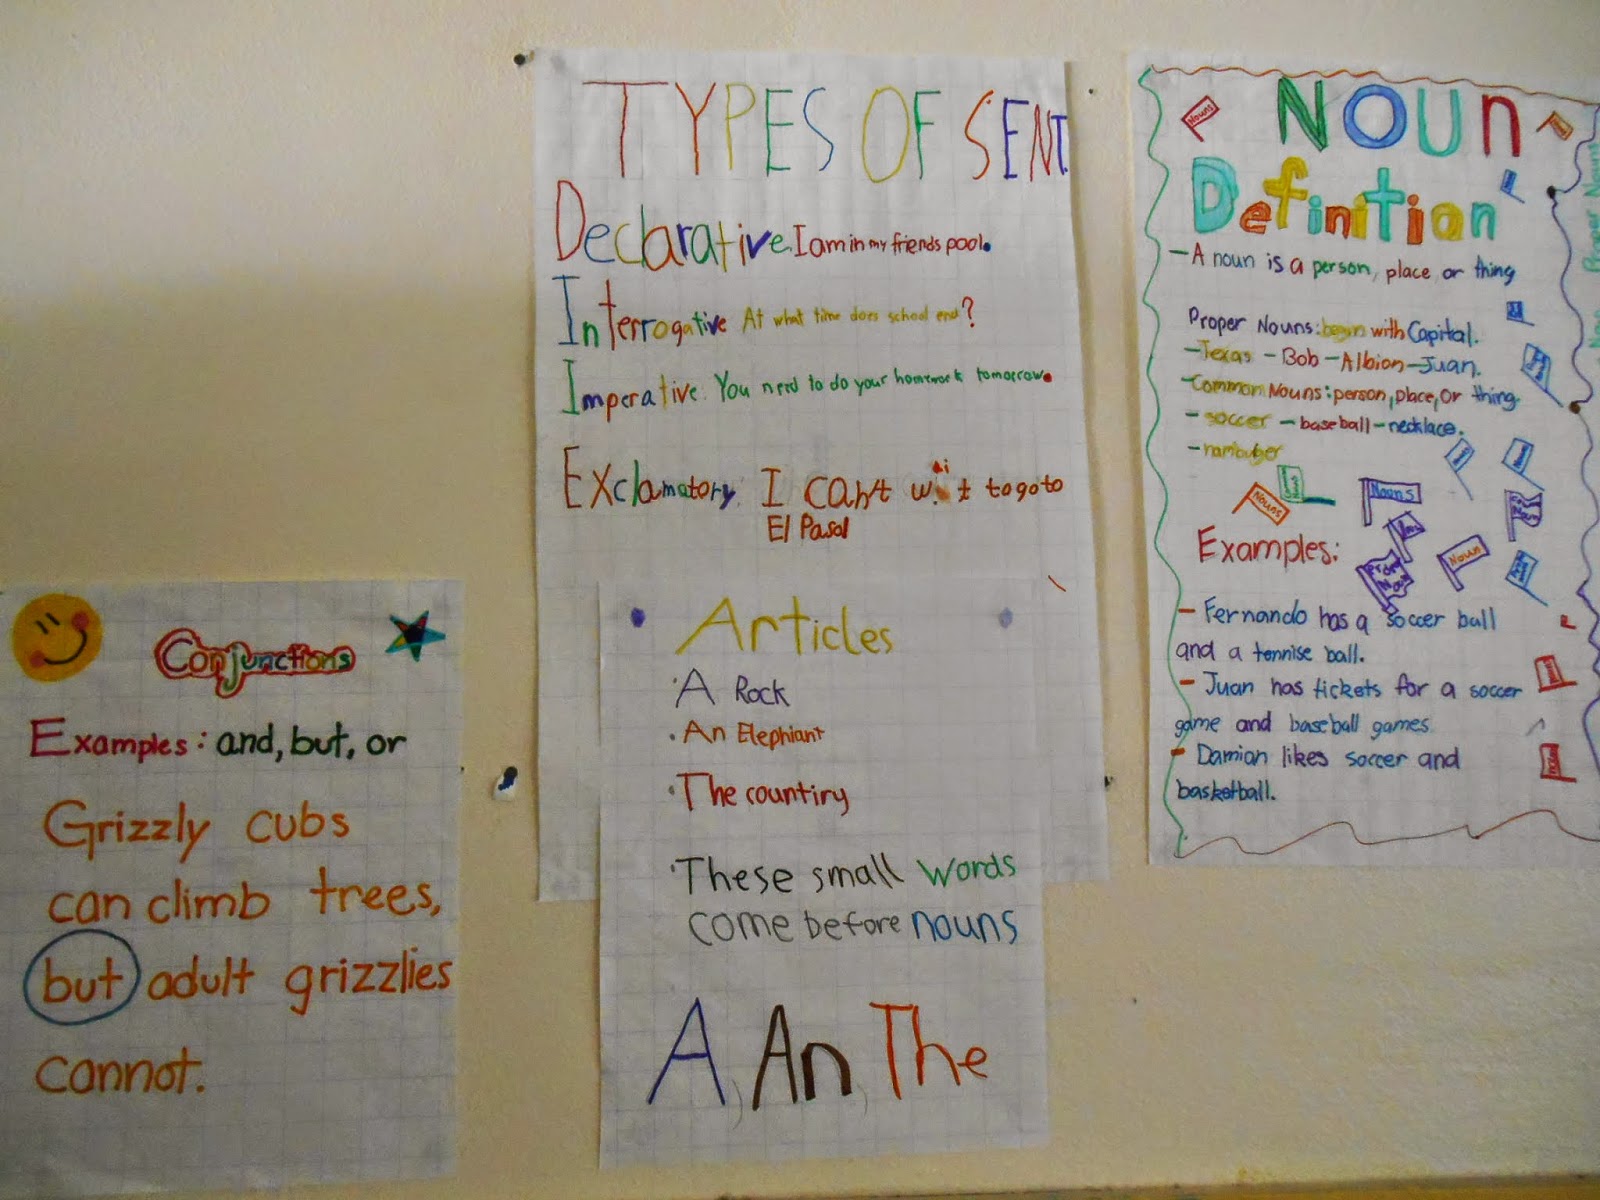 Conjunctions
Examples: and, but, or
Grizzly cubs
can climb trees,
but adult grizzlies
cannot.
TYPES OF SENT
Declarative: I am in my friends pool.
Interrogative At what time does school end?
Imperative: You need to do your homework tomorrow.
Exclamatory: I can't wait to go to
El Paso!
Articles
A Rock
An Elephiant
The countiry
These small words
come before nouns
A, An, The
NOUN
Definition
- A noun is a person, place, or thing
Proper Nouns: begin with Capital.
- Texas - Bob - Albion - Juan.
- Common Nouns: person, place, or thing.
- soccer - baseball - necklace.
- hambuger
Nouns
Nouns
Noun
Examples:
- Fernando has a soccer ball
and a tennise ball.
- Juan has tickets for a soccer
game and baseball games.
- Damian likes soccer and
basketball.
Proper Nouns